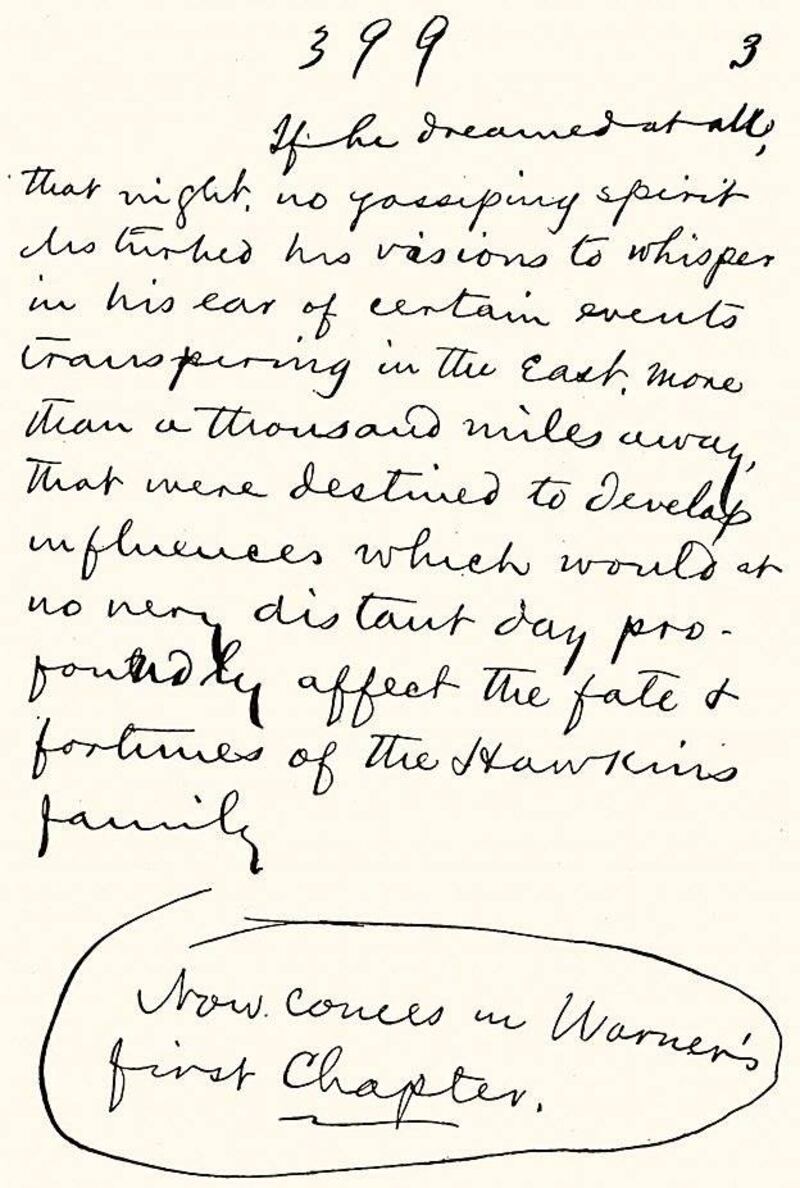 399 3
If he dreamed at all,
that night, no gossiping spirit
disturbed his visions to whisper
in his ear of certain events
transpiring in the East, more
than a thousand miles away,
that were destined to develop
influences which would at
no very distant day pro-
foundly affect the fate &
fortunes of the Hawkins
family
Now comes in Warner's
first Chapter.